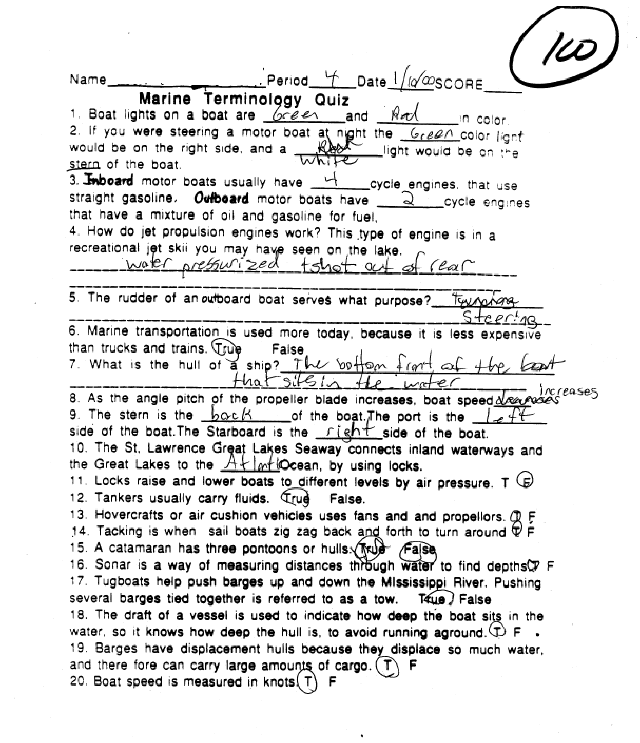 100
Name____________Period 4 Date 1/10/00 SCORE____
Marine Terminology Quiz
1. Boat lights on a boat are Green and Red in color.
2. If you were steering a motor boat at night the Green color light
would be on the right side, and a White light would be on the
stern of the boat.
3. Inboard motor boats usually have 4 cycle engines, that use
straight gasoline. Outboard motor boats have 2 cycle engines
that have a mixture of oil and gasoline for fuel.
4. How do jet propulsion engines work? This type of engine is in a
recreational jet skii you may have seen on the lake.
water pressurized + shot out of rear
5. The rudder of an outboard boat serves what purpose?
Steering
6. Marine transportation is used more today, because it is less expensive
than trucks and trains. True False
7. What is the hull of a ship? The bottom front of the boat
that sits in the water
8. As the angle pitch of the propeller blade increases, boat speed decreases increases
9. The stern is the back of the boat.The port is the left
side of the boat.The Starboard is the right side of the boat.
10. The St. Lawrence Great Lakes Seaway connects inland waterways and
the Great Lakes to the Atlantic Ocean, by using locks.
11. Locks raise and lower boats to different levels by air pressure. T F
12. Tankers usually carry fluids. True False.
13. Hovercrafts or air cushion vehicles uses fans and and propellors. T F
14. Tacking is when sail boats zig zag back and forth to turn around T F
15. A catamaran has three pontoons or hulls. True False
16. Sonar is a way of measuring distances through water to find depths T F
17. Tugboats help push barges up and down the Mississippi River. Pushing
several barges tied together is referred to as a tow. True / False
18. The draft of a vessel is used to indicate how deep the boat sits in the
water, so it knows how deep the hull is, to avoid running aground. T F .
19. Barges have displacement hulls because they displace so much water,
and there fore can carry large amounts of cargo. T F
20. Boat speed is measured in knots T F